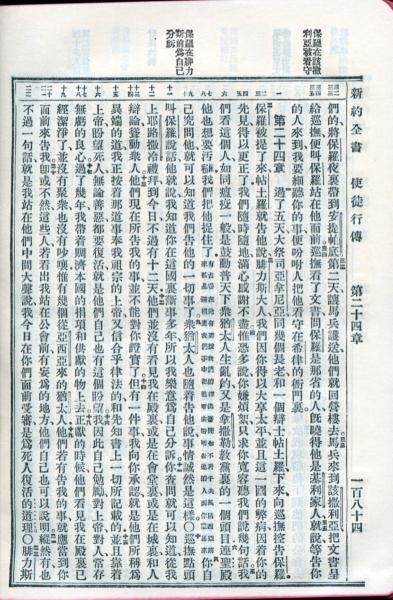 新約全書 使徒行傳 第二十四章 一百八十四
保羅在該撒
利亞被看守
保羅在腓力
斯前爲自己
分訴
們的將保羅夜裏帶到安提帕底第二天讓馬兵護送他們就回營樓去馬兵來到該撒利亞把文書呈
給巡撫便叫保羅站在他面前巡撫看了文書問保羅是那省的人旣曉得他是基利家人就說等告你
的人來到我要細聽你的事便吩咐人把他看守在希律的衙門裏
第二十四章 過了五天大祭司亞拿尼亞同幾個長老和一個辯士帖土羅下來向巡撫控告保羅
保羅被提了來帖土羅就告他說腓力斯大人我們因你得以大享太平並且這一國的弊病因着你的
先見得以更正了我們隨時隨地滿心感謝不盡惟恐多說你嫌煩絮只求你寬容聽我們說幾句話我
們看這個人如同瘟疫一般是鼓動普天下衆猶太人生亂的又是拿撒勒敎黨裏的一個頭目連聖殿
他也想要汚穢我們把他捉住了 你自
己究問他就可以知道我們告他的一切事了衆猶太人也隨着告他說事情誠然是這樣○巡撫點頭
叫保羅說話他就說我知道你在這國裏斷事多年所以我樂意爲自己分訴你查問就可以知道從我
上耶路撒冷禮拜到今日不過有十二天他們並沒有看見我在殿裏或是在會堂裏或是在城裏和人
辯論聳動衆人他們現在所告我的事並不能對你證實了但有一件事我向你承認就是他們所稱爲
異端的道我正按着那道事奉我祖宗的上帝又信合乎律法的和先知書上一切所記載的並且靠着
上帝盼望死人無論善惡都要復活就是他們自己也有這個盼望我因此自己勉勵對上帝對人常存
無虧的良心過了幾年我帶着賙濟本國的捐項和供獻的物上去正獻的時候他們看見我在殿裏已
經潔淨了並沒有聚衆也沒有吵嚷惟有幾個從亞西亞來的猶太人他們若有告我的事就應當到你
面前來告我卽或不然這些人若看出我站在公會前有妄爲的地方他們自己也可以說明縱然有也
不過一句話就是我站在他們中間大聲說我今日在你們面前受審是爲死人復活的道理○腓力斯